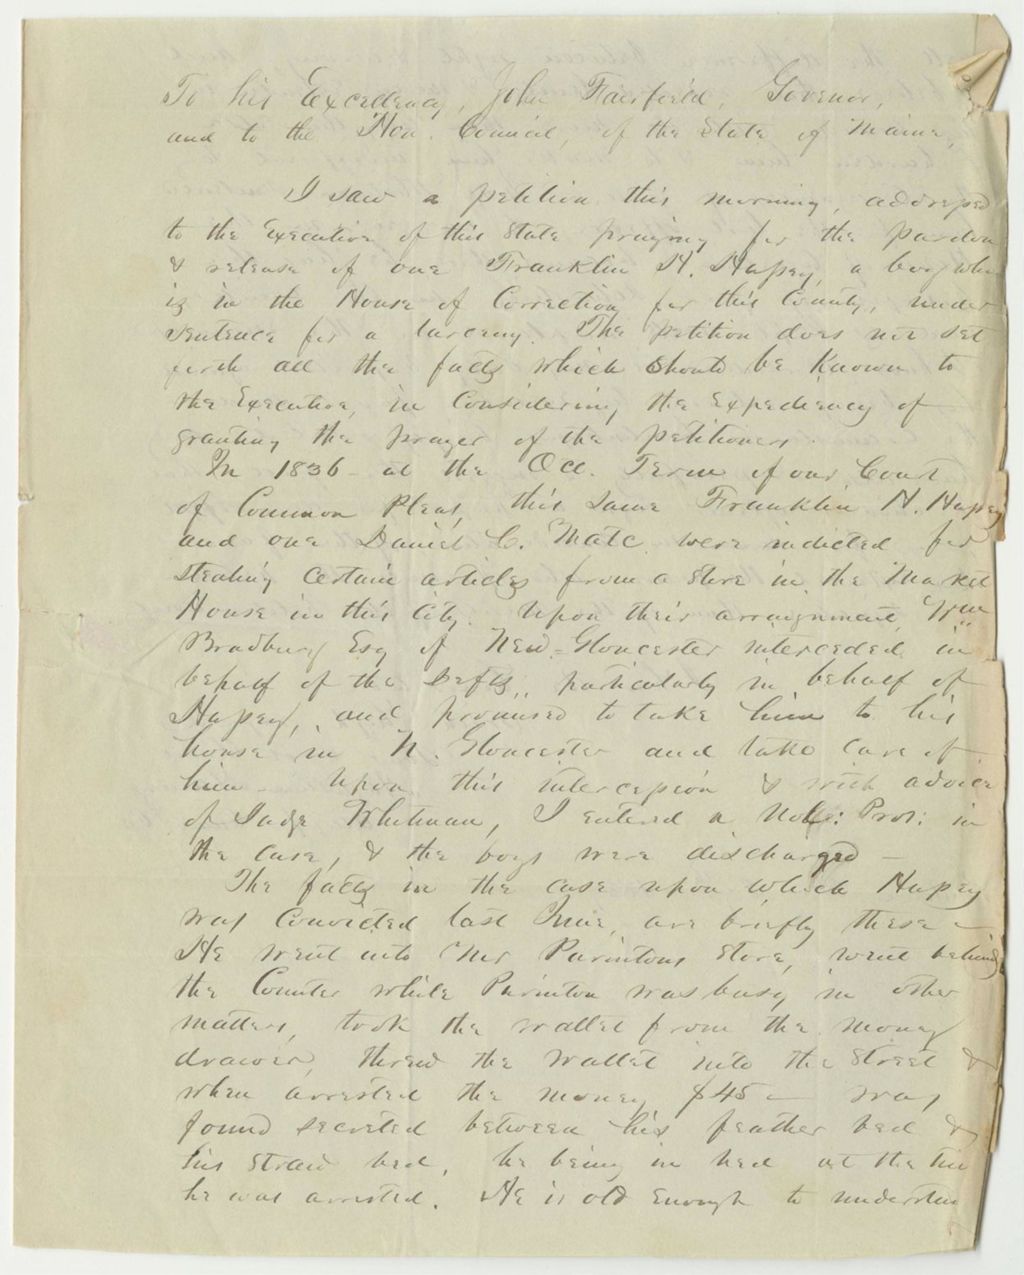 To his Excellency, John Fairfield, Govenor,
and to the Hon. Council, of the State of Maine,
I saw a petition this morning, addressed
to the Executive of this State praying for the pardon
& release of one Franklin H. Hapsey, a boy who
is in the House of Correction for this County, under
sentence for a larceny. The petition does not set
forth all the facts which should be known to
the Executive, in considering the expediency of
granting the prayer of the petitioners.
In 1836 - at the Oct. Term of our Court
of Common Pleas, this same Franklin H. Hapsey
and one Daniel C. were indicted for
stealing certain articles from a store in the Market
House in this City. Upon their arraignment, Wm
Bradbury Esq of New-Gloucester interceded in
behalf of the Defts, particularly in behalf of
Hapsey, and promised to take him to his
house in N. Gloucester and take care of
him - Upon this intercession & with advice
of Judge Whitman, I entered a Nol: Pros: in
the case, & the boys were discharged -
The facts in the case upon which Hapsey
was convicted last June, are briefly these -
He went into Mr Purintons Store, went behind
the Counter while Purinton was busy in other
matters, took the wallet from the money
drawer, threw the wallet into the street &
when arrested the money $45 - was
found secreted between his feather bed &
his straw bed, he being in bed at the time
he was arrested. He is old enough to understand